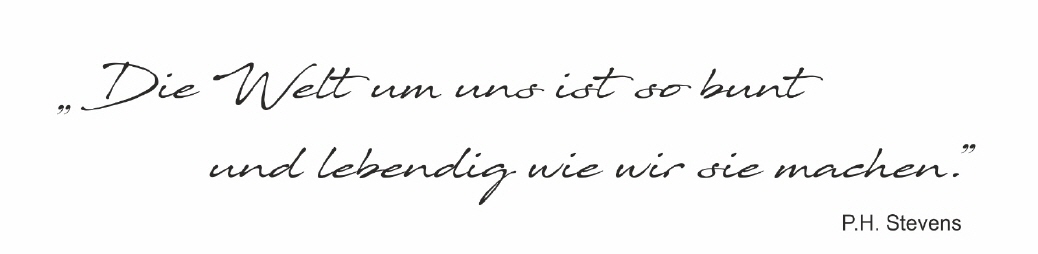 „Die Welt um uns ist so bunt
und lebendig wie wir sie machen.”
P.H. Stevens